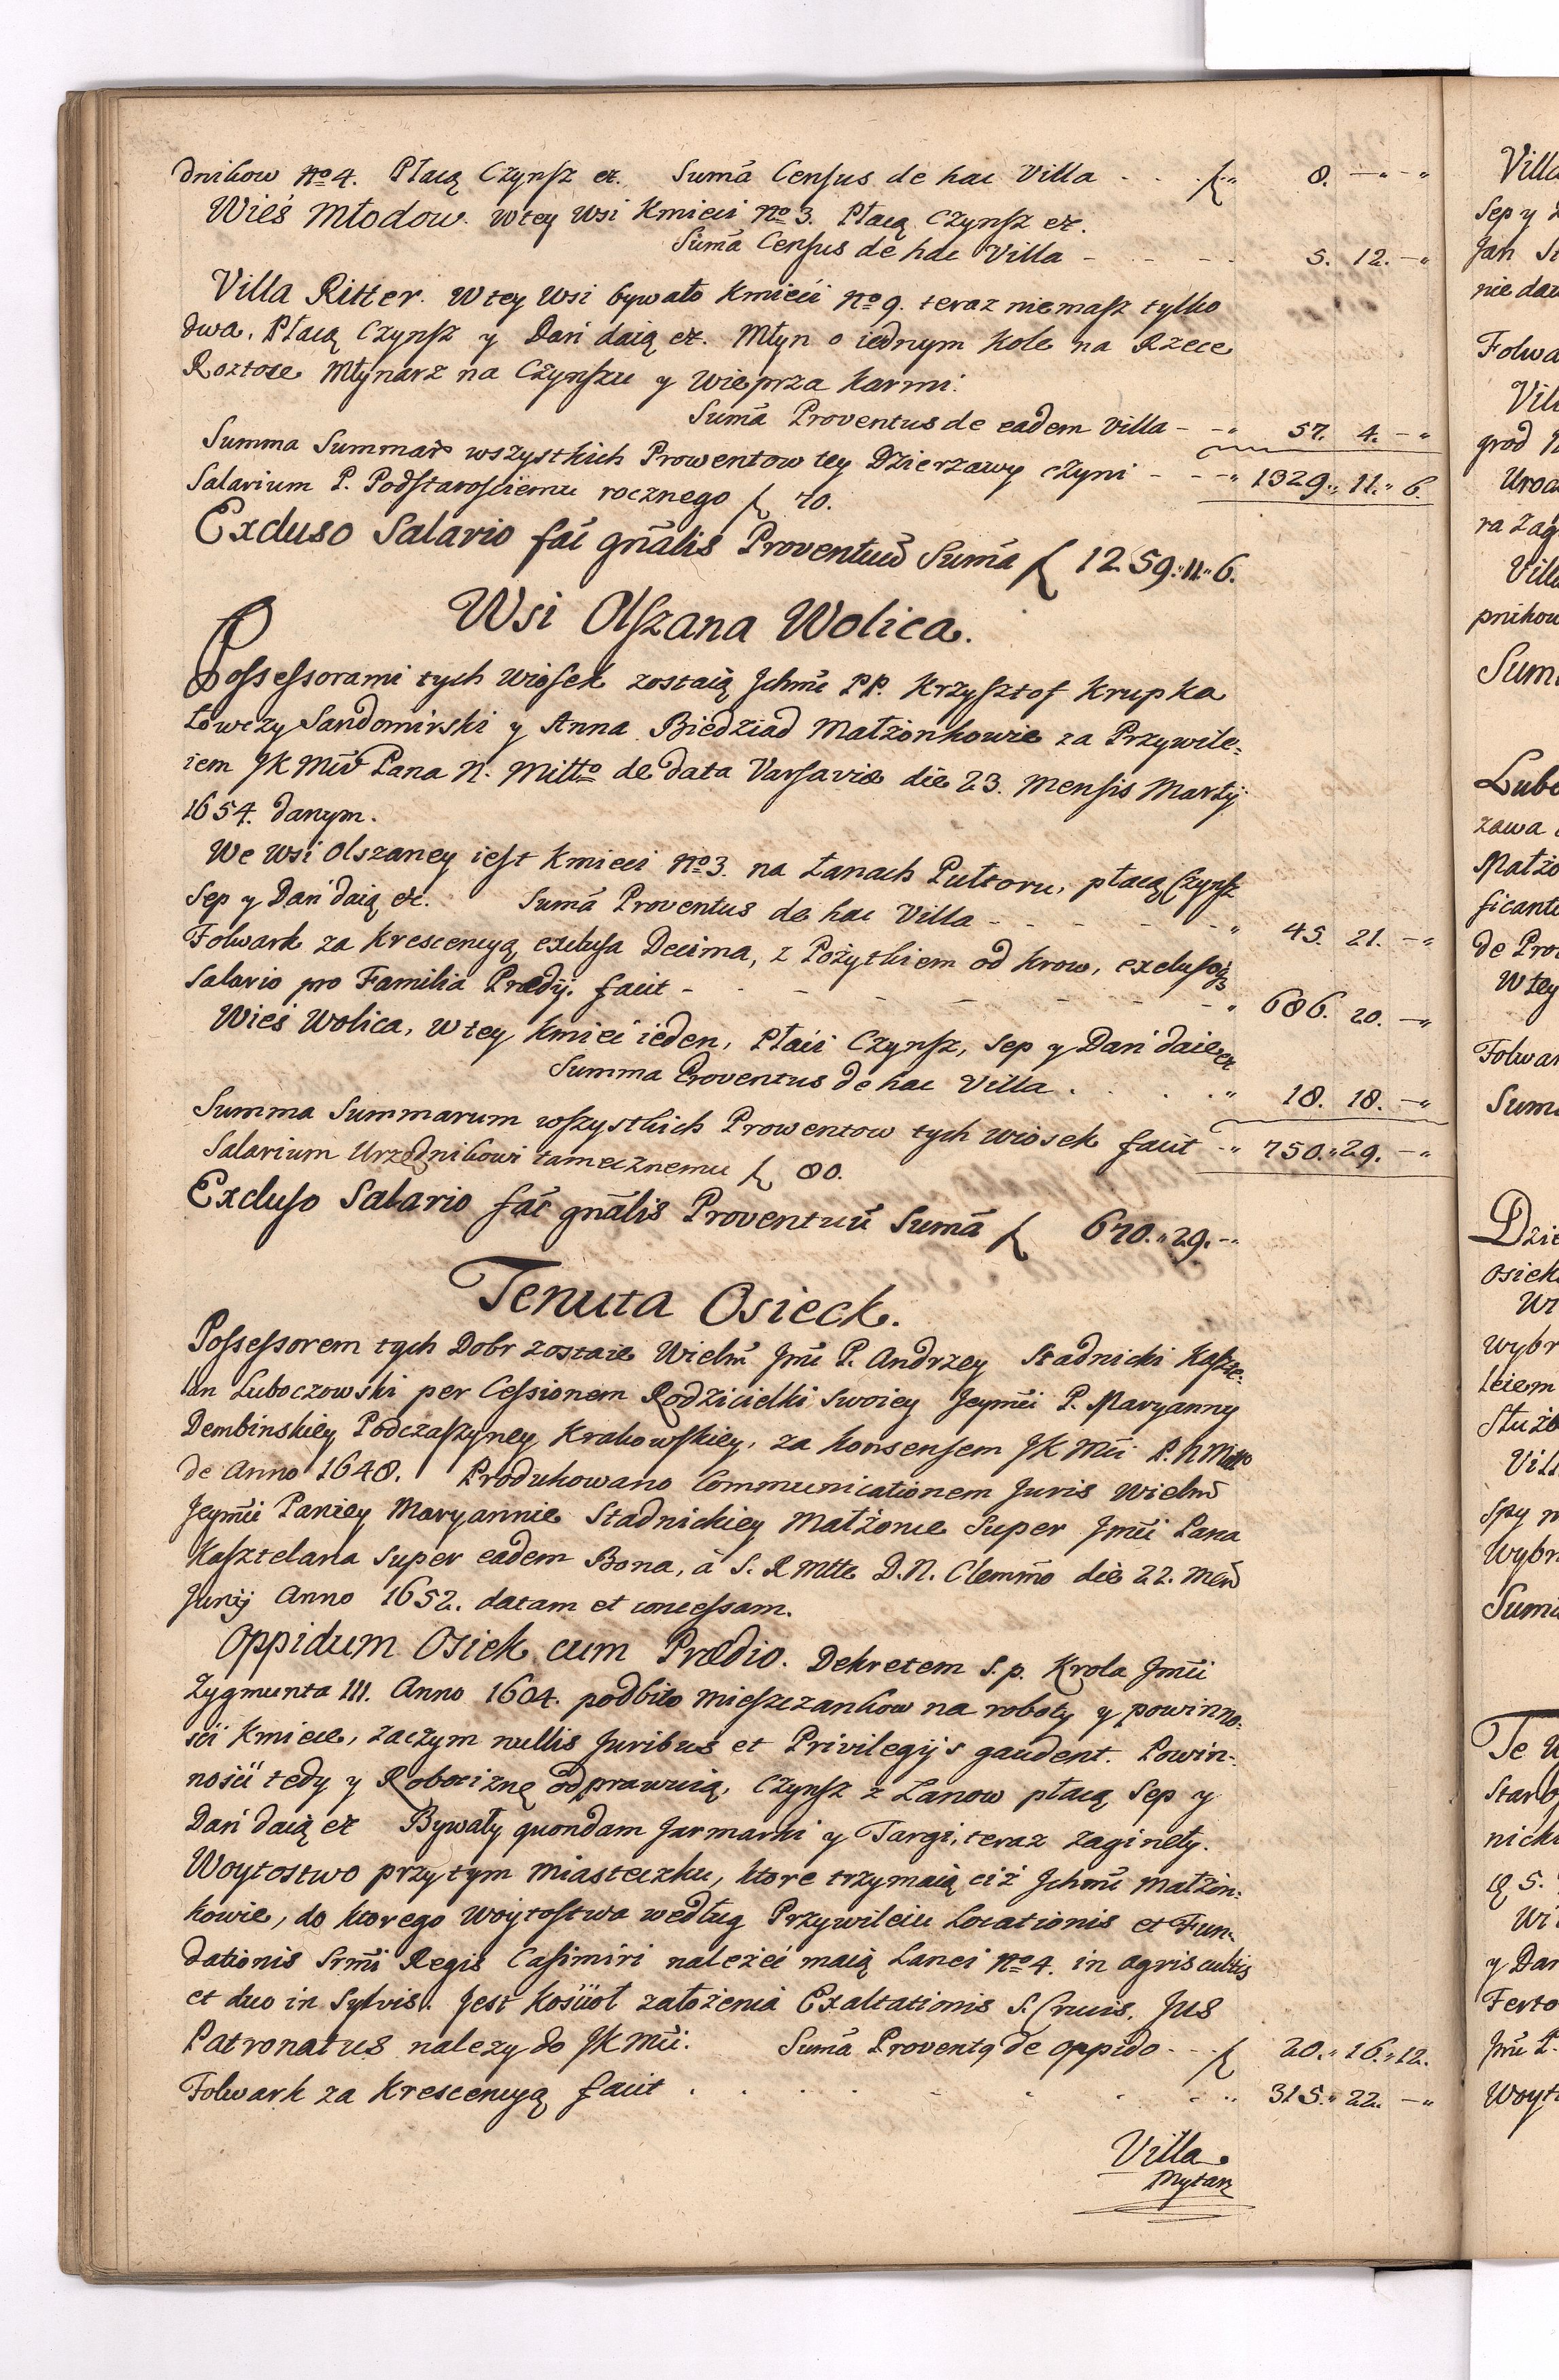 dnikow No 4. Płacą Czynsz etc. Suma Census de hac Villa - - - f " 8. - " - "
Wieś Młodow. W tey Wsi Kmieci No 3. Płacą Czynsz etc.
Suma Census de hac Villa - - - - 5. 12. - "
Villa Ritter. W tey Wsi bywało Kmieci No 9. teraz niemasz tylko
dwa. Płacą Czynsz y Dań daią etc. Młyn o iednym Kole na Rzece
Roztoce Młynarz na Czynszu y wieprza karmi.
Suma Proventus de eadem villa - - " 57. 4. - "
Summa Summar wszystkich Prowentow tey Dzierzawy czyni - - - " 1329 " 11. " 6.
Salarium P. Podstarosciemu rocznego f 70.
Excluso Salario fac gnalis Proventuu Suma f 12.59. " 11 " 6.
Wsi Olszana Wolica.
Possessorami tych wiosek zostaią Jchmc PP. Krzysztof Krupka
Łowczy Sandomirski y Anna Biedziad Małżonkowie za Przywile-
iem JK Mci Pana N. Miłto de data Varsavie die 23. Mensis Martij
1654. danym.
We Wsi Olszaney iest Kmieci No 3. na Łanach Pułtoru, płacą Czynsz
Sep y Dań daią etc. Suma Proventus de hac Villa - - - - - " 45. 21. - "
Folwark za Krescencyą exclusa Decima, z Pożytkiem od krow, exclusoq3
Salario pro Familia Prædij. facit - - - - - - - " 686. 20. - "
Wieś Wolica, w tey Kmieć ieden, Płaci Czynsz, Sep y Dań daie etc
Summa Proventus de hac Villa . . . . " 18. 18. - "
Summa Summarum wszystkich Prowentow tych Wiosek facit - " 750. " 29. - "
Salarium Urzędnikowi tamecznemu f 80.
Excluso Salario fac gnalis Proventuu Suma f 670. " 29. - "
Tenuta Osieck.
Possessorem tych Dobr zostaie Wielm Jmc P. Andrzey Stadnicki Kaszte-
lan Luboczowski per Cessionem Rodzicielki swoiey Jeymci P. Maryanny
Dembinskiey Podczaszyney Krakowskiey, za Konsensem JK Mci P. N Miłto
de Anno 1648. Produkowano Communicationem Juris Wielm
Jeymci Paniey Maryannie Stadnickiey Małżonce Super Jmci Pana
Kasztelana super eadem Bona, à S. R Mtte D. N. Clemmo die 22. Men
Junij Anno 1652. datam et concessam.
Oppidum Osiek cum Prædio. Dekretem s. p. Krola Jmci
Zygmunta III. Anno 1604. podbito Mieszczankow na roboty y powinno-
sci Kmiece, zaczym nullis Juribus et Privilegijs gaudent. Powin-
nosci tedy y Robociznę odprawuią, Czynsz z Lanow płacą Sep y
Dań daią etc Bywały quondam Jarmarki y Targi, teraz zagineły.
Woytostwo przy tym miasteczku, ktore trzymaią ciż Jchmc Małżon-
kowie, do ktorego Woytostwa według Przywileiu Locationis et Fun-
dationis Srmi Regis Casimiri należeć maią Lanei No 4. in agris cultis
et duo in Sylvis. Jest Kościoł założenia Exaltationis S. Crucis. Jus
Patronatus należy do JK Mci. Suma Proventq de oppido - - - f 20. " 16. " 12.
Folwark za Krescencyą facit . . . . - . . . " 315. " 22. - "
Villa
Mytarz